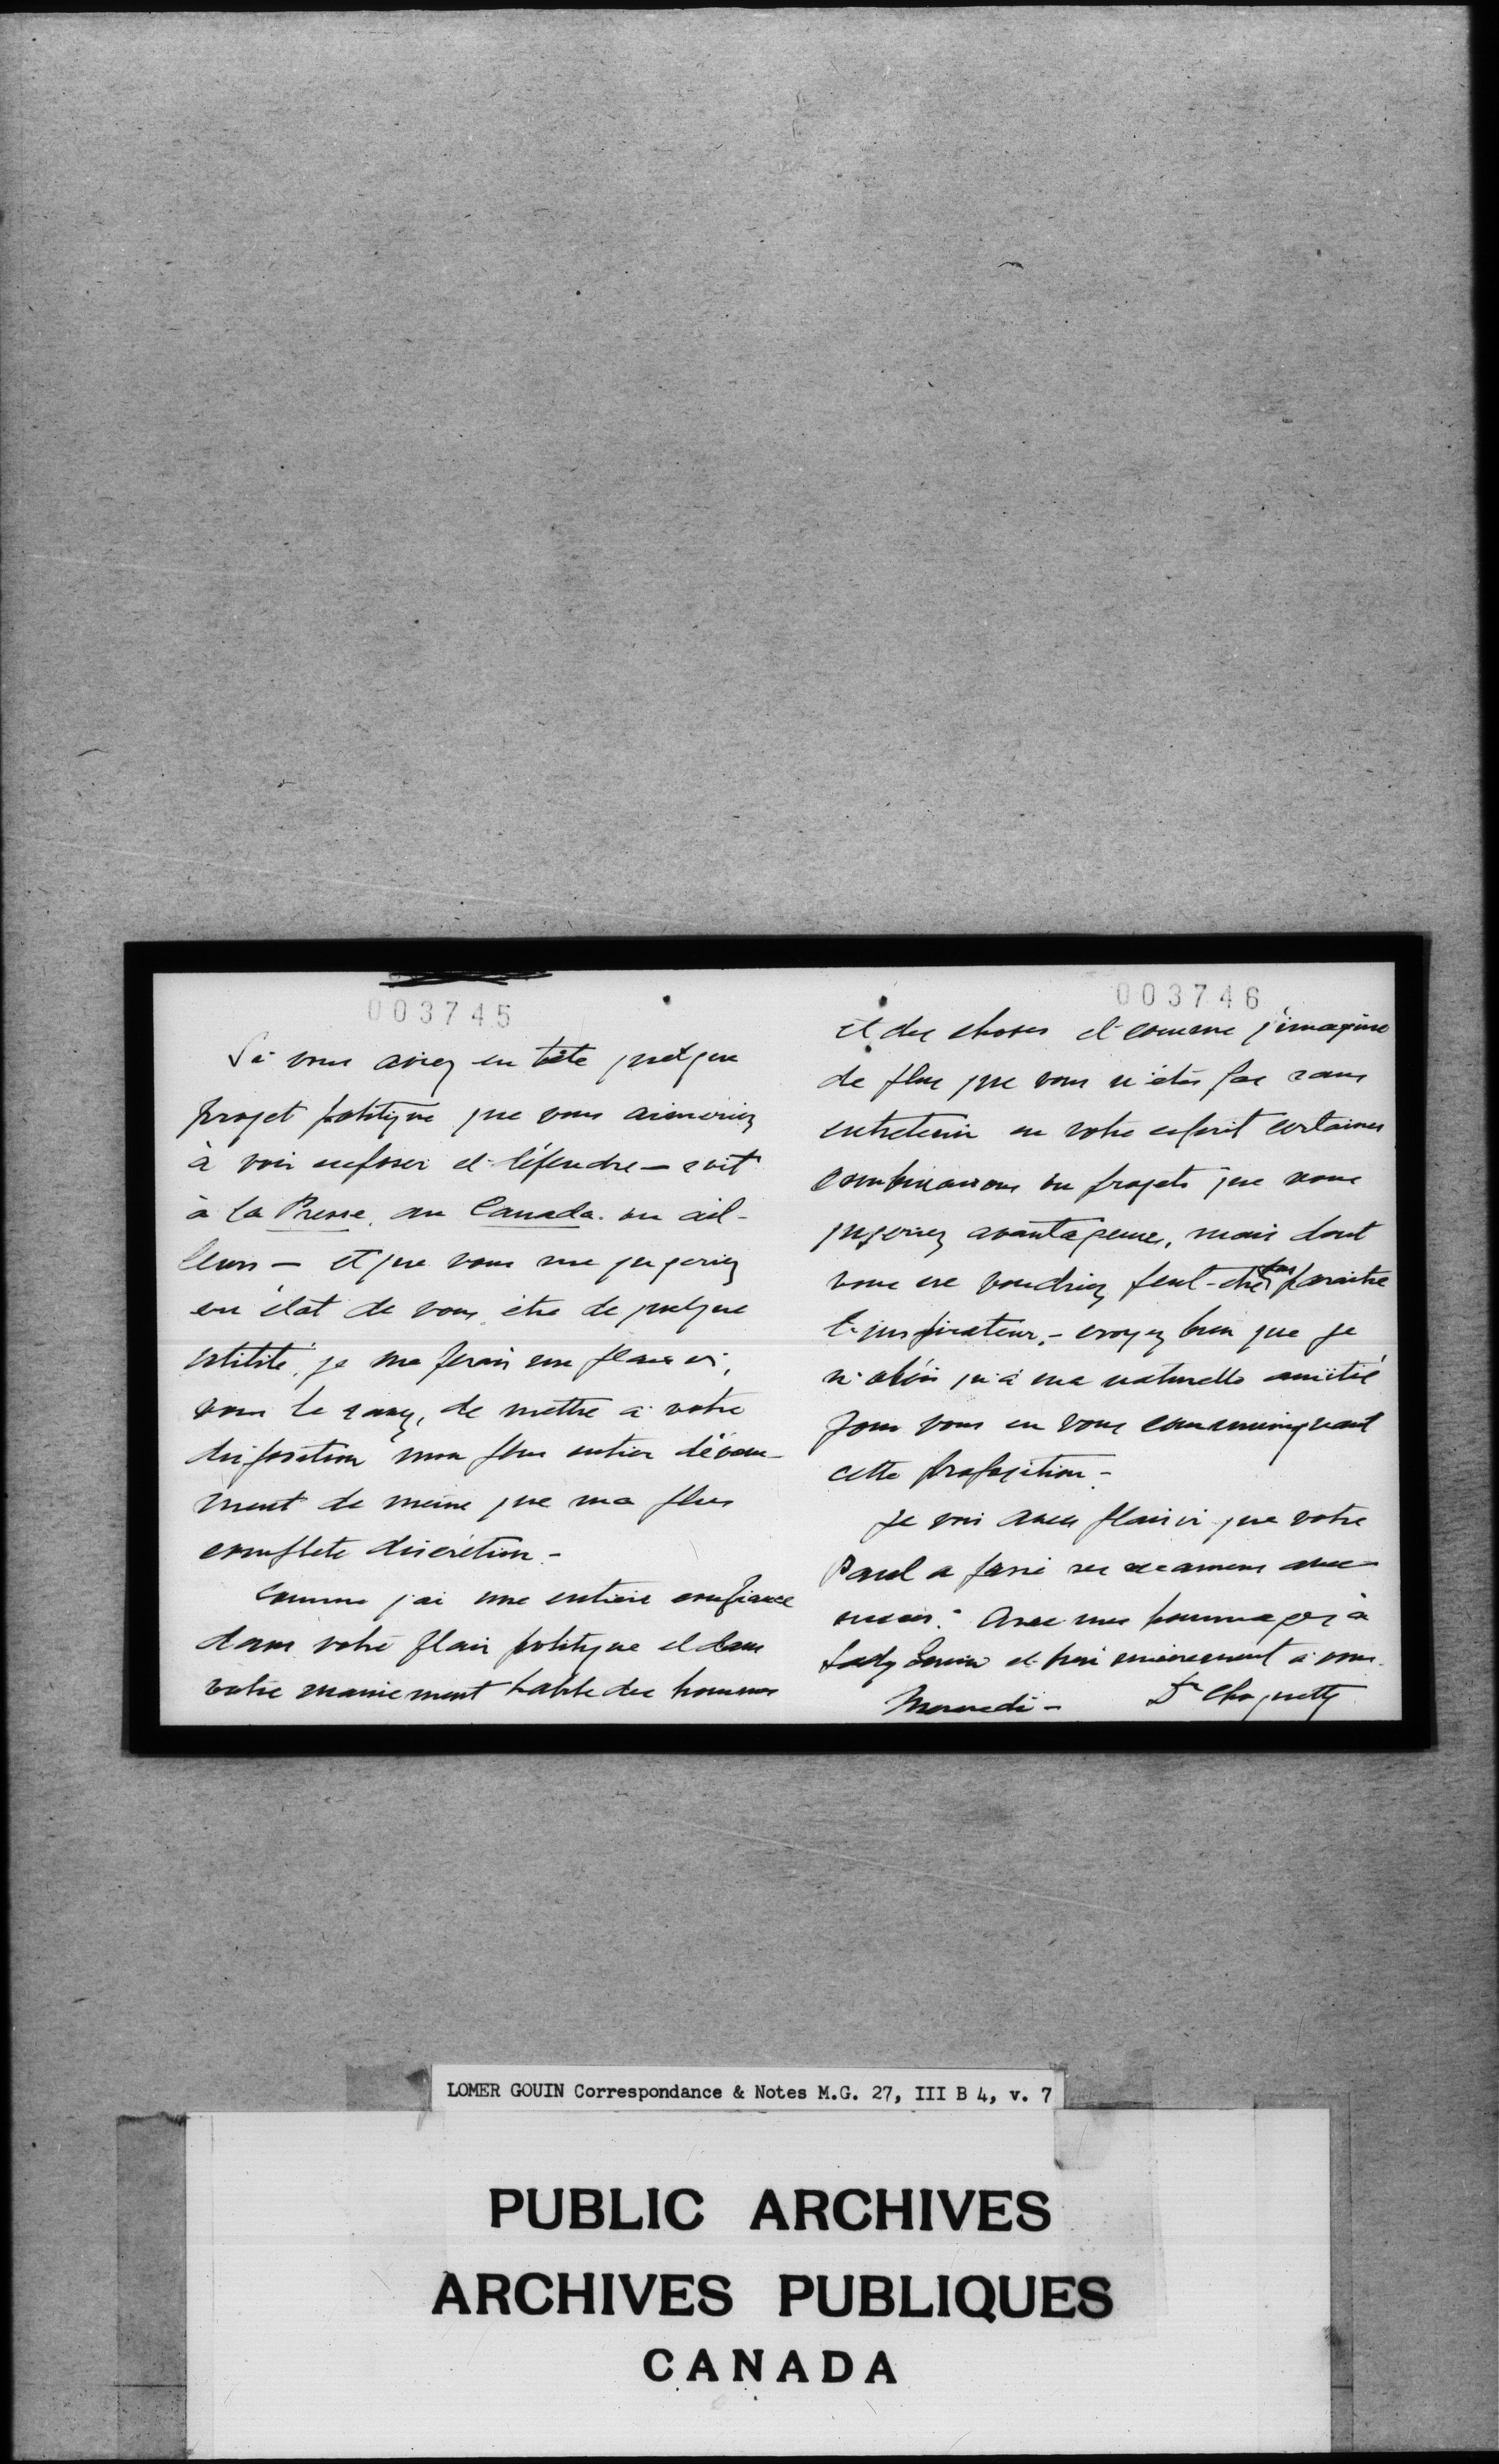 003745
Si vous aviez en tête quelque
projet politique que vous aimeriez
à voir exposer et défendre — soit
à la Presse, au Canada ou ail-
leurs — et que vous me jugeriez
en état de vous être de quelque
utilité, je me ferais un plaisir,
vous le savez, de mettre à votre
disposition mon plus entier dévoue-
ment de même que ma plus
complète discrétion -
Comme j'ai une entière confiance
dans votre flair politique et dans
votre maniement habile des hommes
003746
et des choses et comme j'imagine
de plus que vous n'êtes pas sans
entretenir en votre esprit certaines
combinaisons ou projets que vous
jugeriez avantageuses, mais dont
vous ne voudriez peut-être pas paraître
l'inspirateur, - croyez bien que je
n'obéis qu'à ma naturelle amitié
pour vous en vous communiquant
cette proposition -
Je vois avec plaisir que votre
Paul a passé ses examens avec
succès. Avec mes hommages à
Lady Gouin et bien sincèrement à vous.
Mercredi - Dr Choquette
LOMER GOUIN Correspondance & Notes M.G. 27, III B 4, v. 7
PUBLIC ARCHIVES
ARCHIVES PUBLIQUES
CANADA